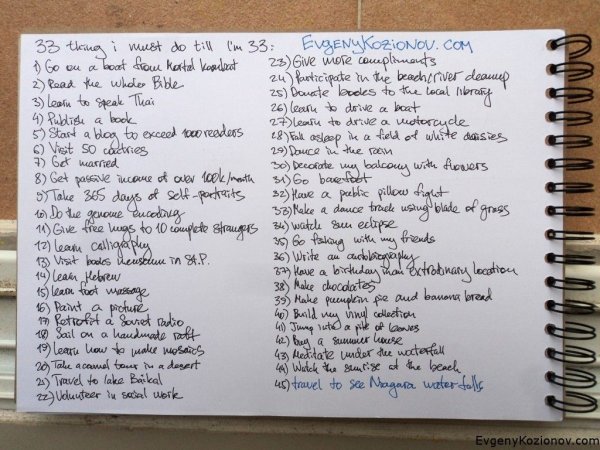 33 thing i must do till I'm 33:
EvgenyKozionov.com
1) Go on a boat from Mortal Kombat
2) Read the whole Bible
3) Learn to speak Thai
4) Publish a book
5) Start a blog to exceed 1000 readers
6) Visit 50 coutries
7) Get married
8) Get passive income of over 100k/month
9) Take 365 days of self-portraits
10) Do the genome encoding
11) Give free hugs to 10 complete strangers
12) Learn calligraphy
13) Visit books museum in St.P.
14) Learn Hebrew
15) Learn foot massage
16) Paint a picture
17) Retrofit a Soviet radio
18) Sail on a handmade raft
19) Learn how to make mosaics
20) Take a camel tour in a desert
21) Travel to lake Baikal
22) Volunteer in social work
23) Give more compliments
24) Participate in the beach/river cleanup
25) Donate books to the local library
26) Learn to drive a boat
27) Learn to drive a motorcycle
28) Fall asleep in a field of white daisies
29) Dance in the rain
30) Decorate my balcony with flowers
31) Go barefoot
32) Have a public pillow fight
33) Make a dance track using blade of grass
34) Watch sun eclipse
35) Go fishing with my friends
36) Write an autobiography
37) Have a birthday in an extrodinary location
38) Make chocolates
39) Make pumpkin pie and banana bread
40) Build my vinyl collection
41) Jump into a pile of leaves
42) Buy a summer house
43) Meditate under the waterfall
44) Watch the sunrise at the beach
45) travel to see Niagara waterfalls
EvgenyKozionov.com